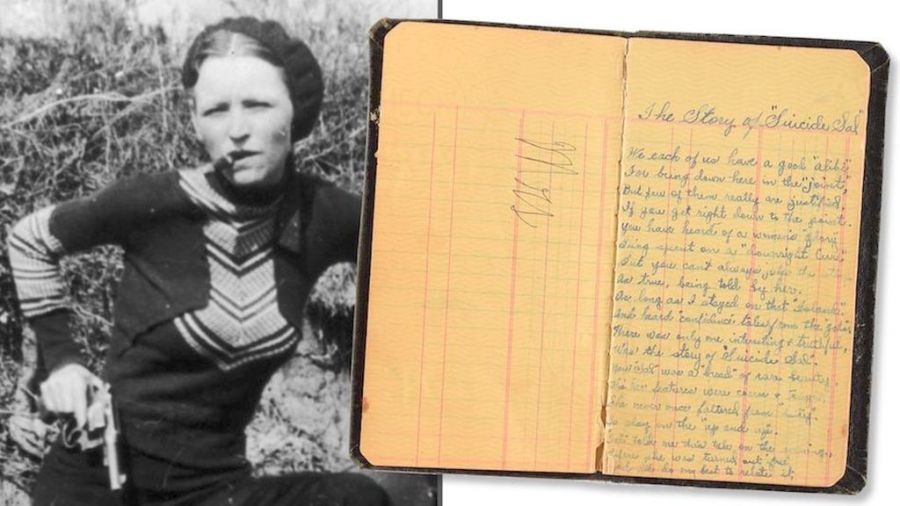 The Story of "Suicide Sal"
We each of us have a good "alibi"
For being down here in the "joint"
But few of them really are justified
If you get right down to the point.
You have heard of a woman's glory
Being spent on a "downright cur"
But you can't always judge the story
As true, being told by her.
As long as I stayed on that "Island"
And heard "confidence tales" from the gals
There was only one interesting & truthful,
Was the story of "Suicide Sal".
Now "Sal" was a "broad" of rare beauty
features were coarse &
She never once faltered from "duty"
To play on the "up and up".
"Sal" told me this tale on the evening
Before she was turned out "free"
my best to relate it